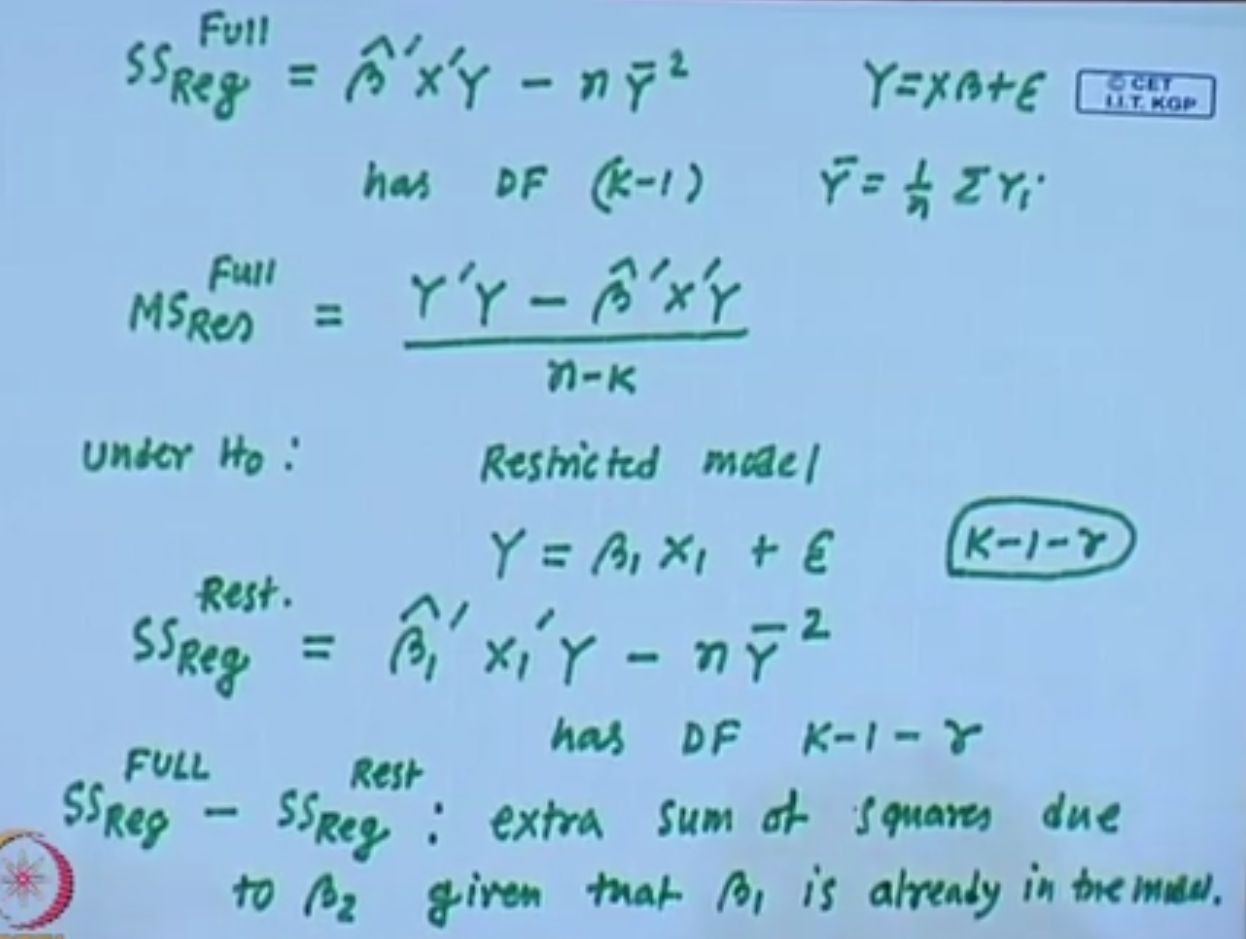 SS_Reg^Full = β̂′X′Y − nȲ² Y=Xβ+ε © CET I.I.T. KGP
has DF (K-1) Ȳ = 1/n ΣYᵢ
MS_Res^Full = (Y′Y − β̂′X′Y) / (n-K)
Under H₀: Restricted model
Y = β₁ X₁ + ε K-1-r
SS_Reg^Rest. = β̂₁′ X₁′Y − nȲ²
has DF K-1-r
SS_Reg^FULL − SS_Reg^Rest : extra sum of squares due
to β₂ given that β₁ is already in the model.